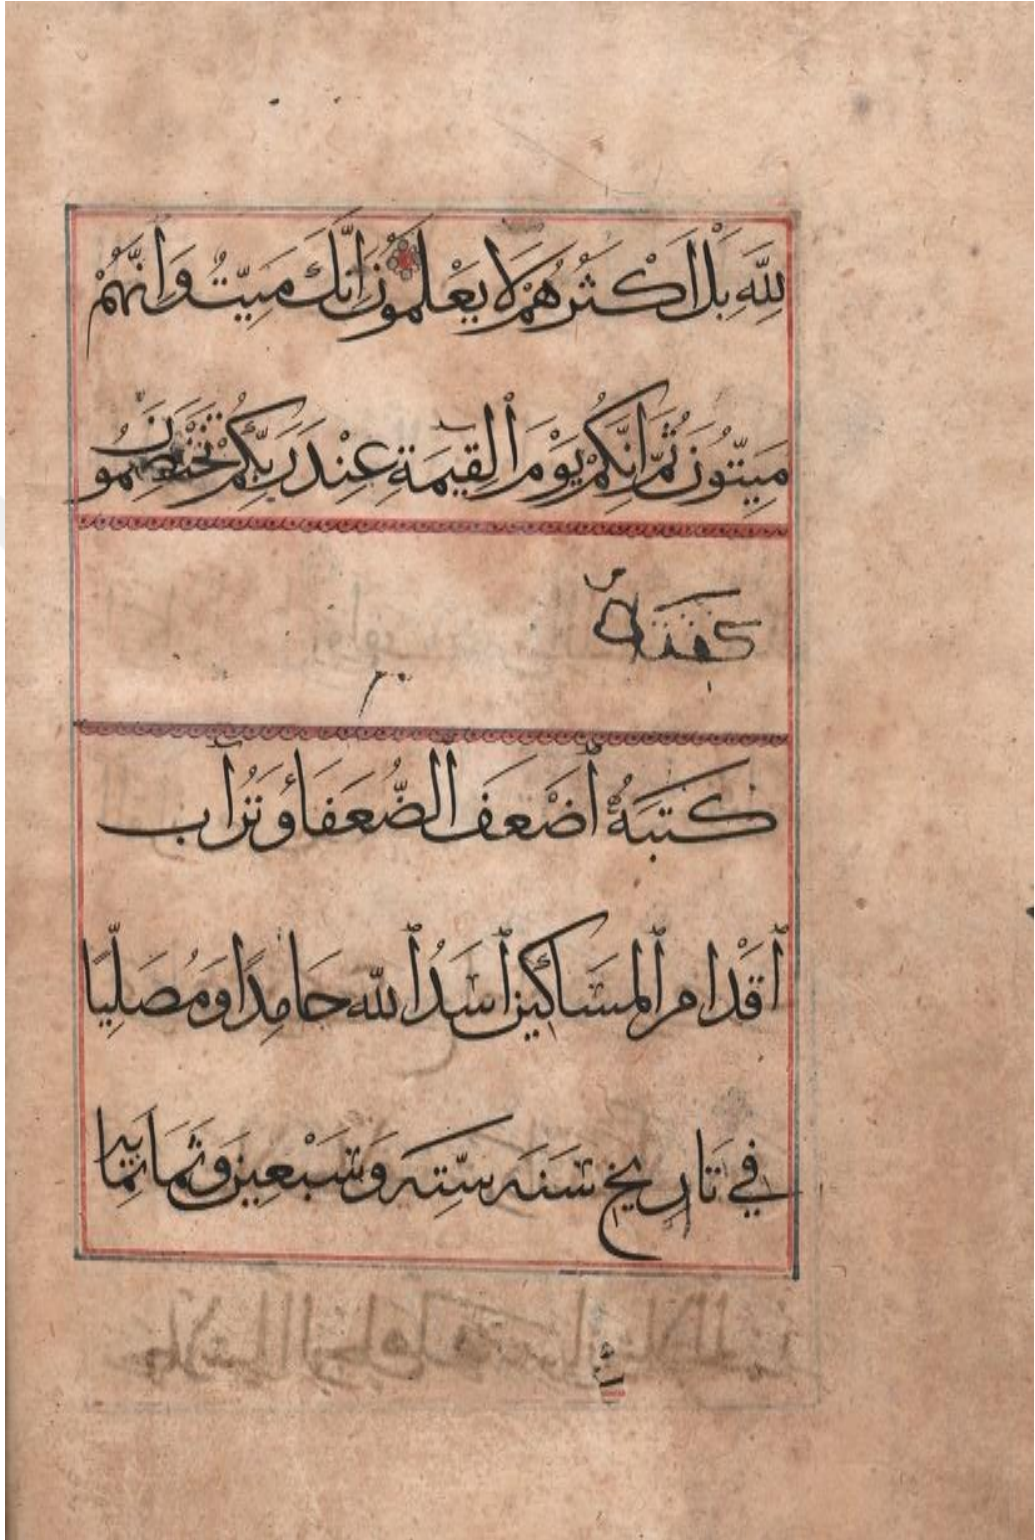 لِلَّهِ بَلْ اَكْثَرُهُمْ لَا يَعْلَمُونَ اِنَّكَ مَيِّتٌ وَاِنَّهُمْ
مَيِّتُونَ ثُمَّ اِنَّكُمْ يَوْمَ الْقِيمَةِ عِنْدَ رَبِّكُمْ تَخْتَصِمُونَ
كَتَبَهُ اَضْعَفَ الضُّعَفَاؤُ تُرَاب
اَقْدَام الْمَسَاكِين اَسَدُ الله حَامِدًا وَمُصَلِّيًا
فِي تَارِيخ سَنَه سِتِّه وَسَبْعِين وَثَمَانِمِايه